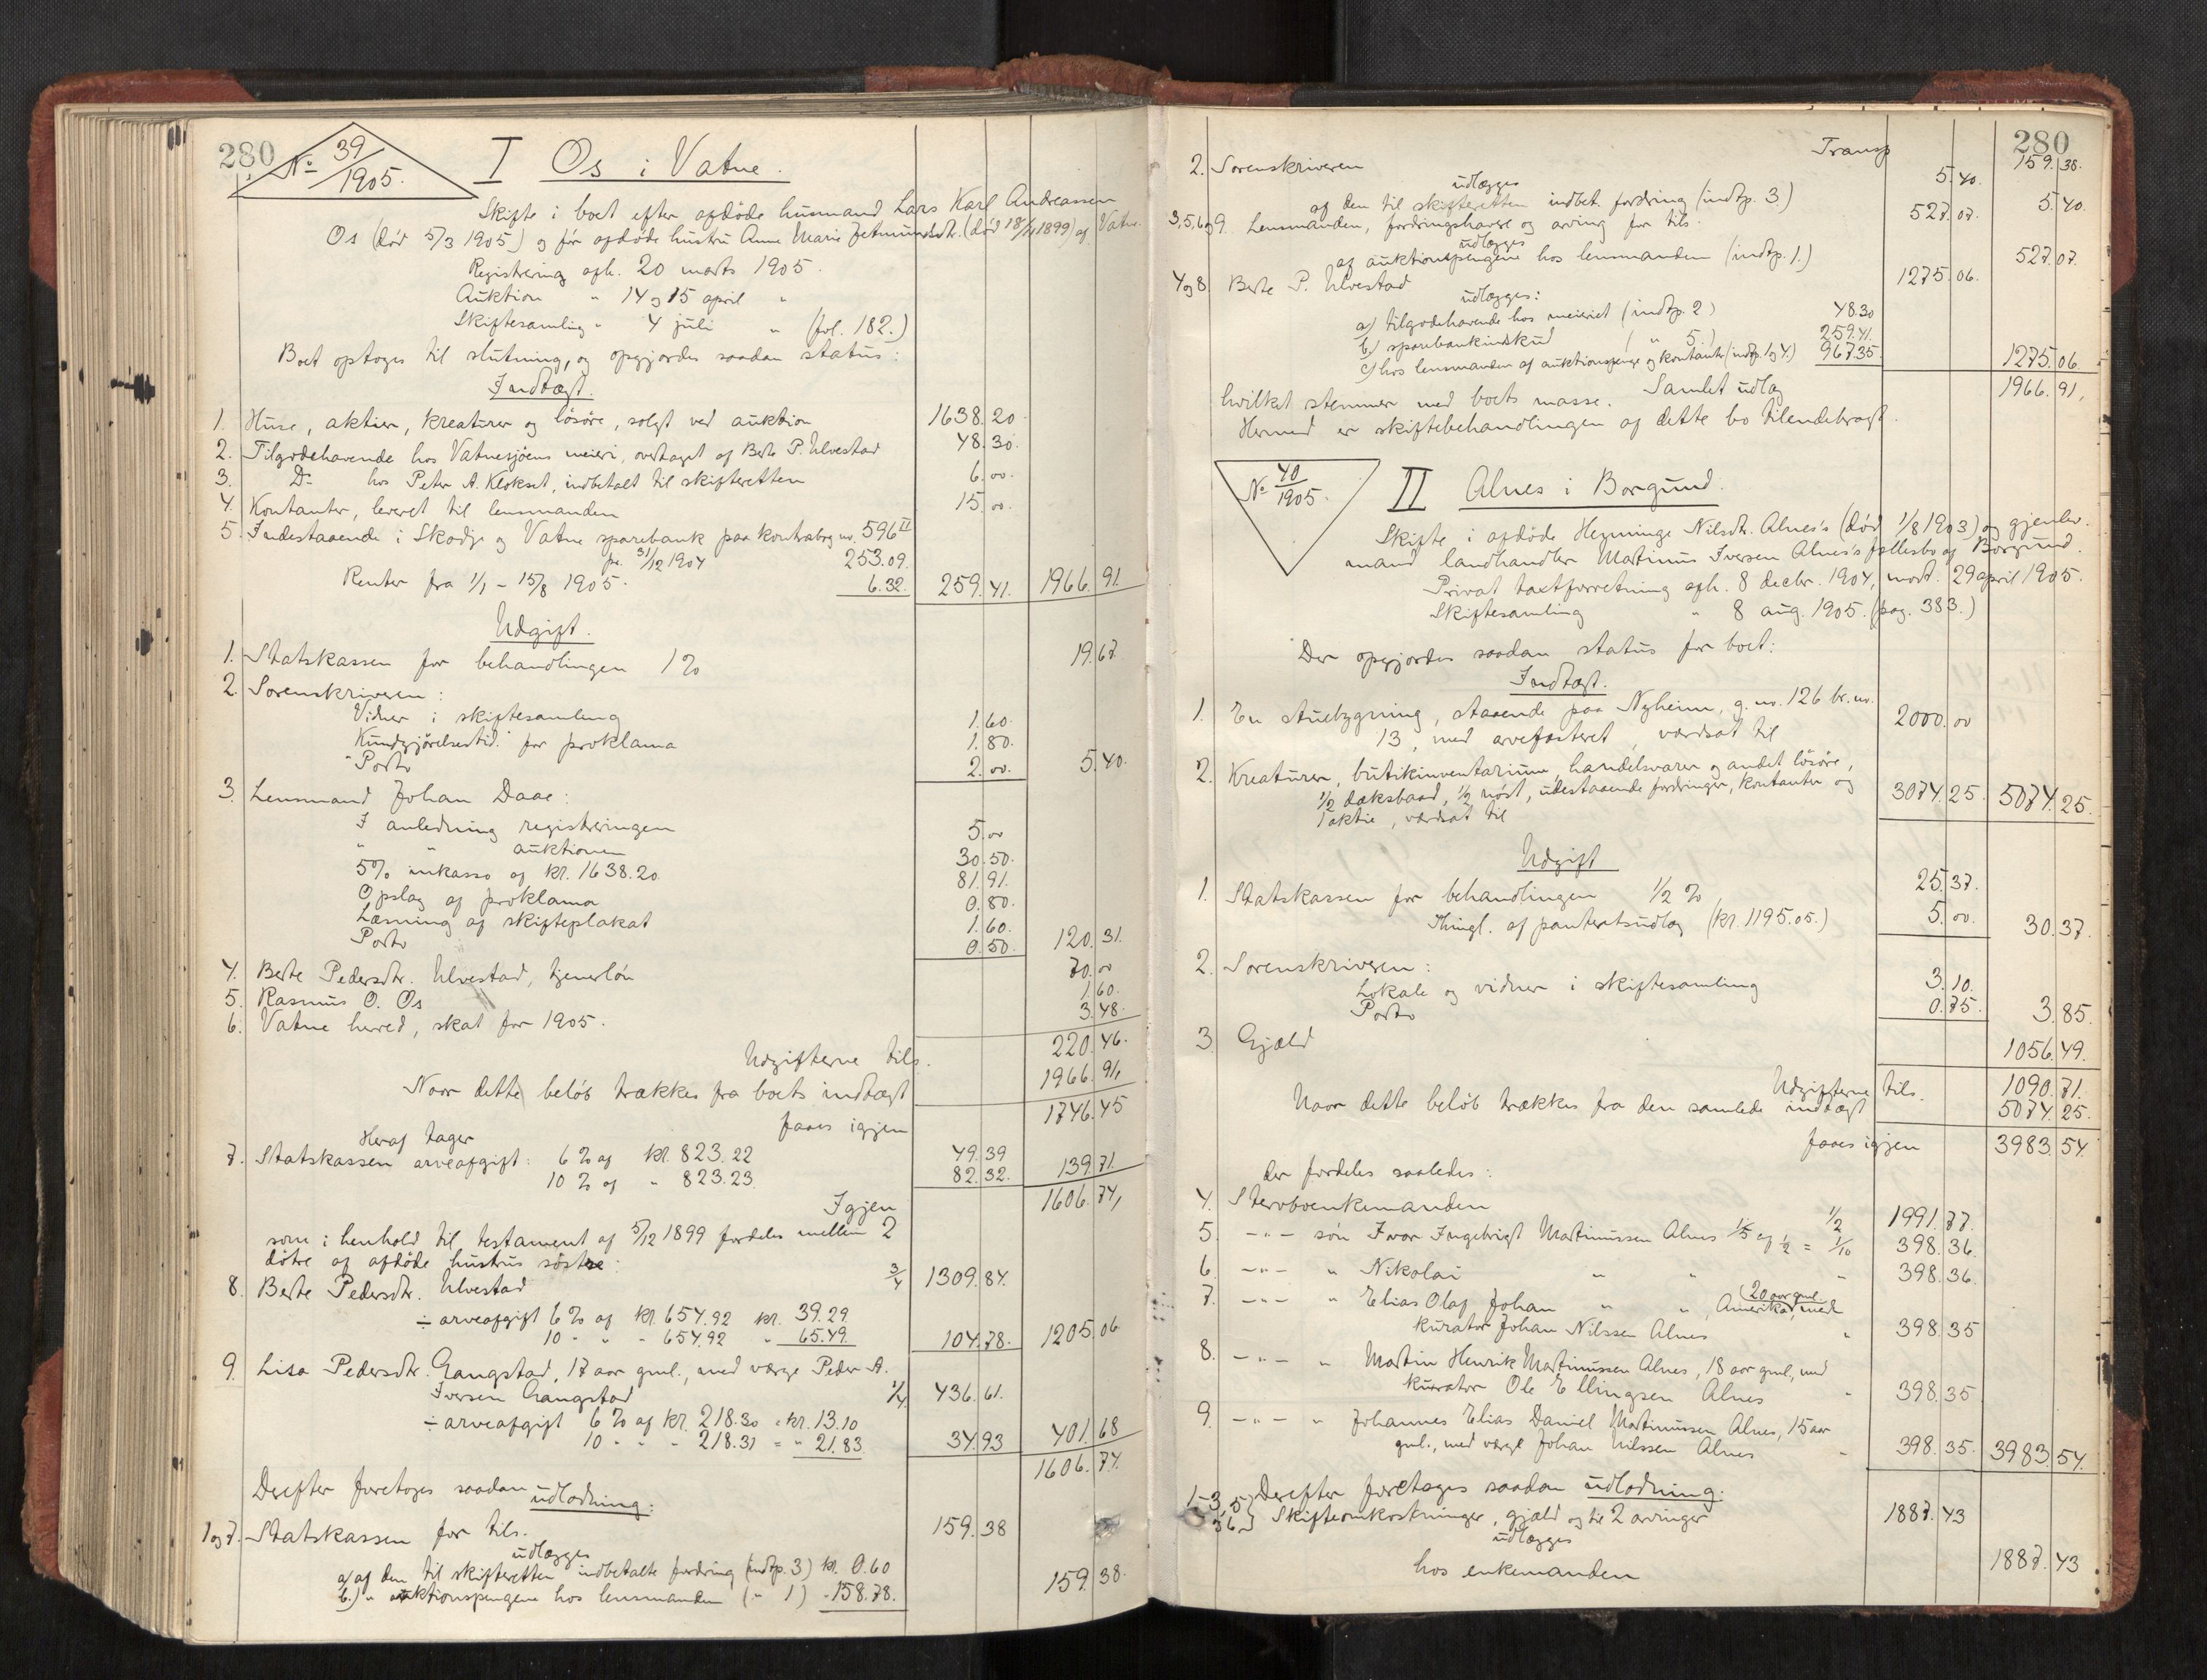 280
No 39/1905.
I Os i Vatne.
Skifte i boet efter afdøde husmand Lars Karl Andreassen
Os (død 5/3 1905) og før afdøde hustru Anne Marie Jetmundsdtr. (død 18/4 1899) af Vatne.
Registrering afh. 20 marts 1905.
Auktion " 14 og 15 april "
Skiftesamling " 4 juli " (fol. 182.)
Boet optoges til slutning, og opgjordes saadan status:
Indtægt.
1. Huse, aktier, kreaturer og løsøre, solgt ved auktion 1638.20
2. Tilgodehavende hos Vatnesjøens meieri, overtaget af Berte P. Ulvestad 48.30.
3. Do hos Peter A. Klokset, indbetalt til skifteretten 6.00
4. Kontanter, leveret til lensmanden 15.00.
5. Indestaaende i Skodje og Vatne sparebank paa kontrabog no. 596 II
pr. 31/12 1904 253.09.
Renter fra 1/1 - 15/8 1905. 6.32. 259.41. 1966.91.
Udgift.
1. Statskassen for behandlingen 1 % 19.67.
2. Sorenskriveren:
Vidner i skiftesamling 1.60.
Kundgjørelsestid. for proklama 1.80.
Porto 2.00. 5.40.
3. Lensmand Johan Daae:
I anledning registreringen 5.00
" " auktionen 30.50.
5% inkasso af kr. 1638.20. 81.91.
Opslag af proklama 0.80.
Læsning af skifteplakat 1.60.
Porto 0.50. 120.31.
4. Berte Pedersdtr. Ulvestad, tjenerløn 70.00
5. Rasmus O. Os 1.60.
6. Vatne herred, skat for 1905. 3.48.
Udgifterne tils. 220.46.
Naar dette beløb trækkes fra boets indtægt 1966.91,
faaes igjen 1746.45
Heraf tager
7. Statskassen arveafgift: 6 % af kr. 823.22 49.39
10 % af " 823.23. 82.32. 139.71.
Igjen 1606.74,
som i henhold til testament af 5/12 1899 fordeles mellem 2
døtre af afdøde hustrus søstre:
8. Berte Pedersdtr. Ulvestad 3/4 1309.84.
÷ arveafgift 6 % af kr. 654.92 kr. 39.29.
10 - " - 654.92 " 65.49. 104.78. 1205.06
9. Lisa Pedersdtr. Gangstad, 17 aar gml., med værge Peder A.
Iversen Gangstad 1/4 436.61.
÷ arveafgift 6 % af kr. 218.30 = kr. 13.10
10 - " - 218.31 = " 21.83. 34.93 401.68
1606.74.
Derefter foretoges saadan udlodning:
1 og 7. Statskassen for tils. 159.38
udlægges
a) af den til skifteretten indbetalte fordring (indtp. 3) kr. 0.60
b.) " auktionspengene hos lensmanden ( " 1) - 158.78. 159.38.
280
Transp 159.38.
2. Sorenskriveren 5.40.
udlægges
af den til skifteretten indbet. fordring (indtp. 3.) 5.40.
3, 5, 6 og 9. Lensmanden, fordringshavere og arving for tils. 527.07.
udlægges
af auktionspengene hos lensmanden (indtp. 1.) 527.07.
4 og 8 Berte P. Ulvestad 1275.06.
udlægges:
a) tilgodehavende hos meieriet (indtp. 2) 48.30
b.) sparebankindskud ( " 5.) 259.41.
c) hos lensmanden af auktionspenge og kontanter (indtp. 1 og 4.) 967.35. 1275.06.
Samlet udlæg 1966.91,
hvilket stemmer med boets masse.
Hermed er skiftebehandlingen af dette bo tilendebragt.
No 40/1905.
II Alnes i Borgund.
Skifte i afdøde Henninge Nilsdtr. Alnes's (død 1/8 1903) og gjenlev.
mand landhandler Martinus Iversen Alnes's fællesbo af Borgund.
Privat taxtforretning afh. 8 decbr. 1904, modt. 29 april 1905.
Skiftesamling " 8 aug. 1905. (pag. 383.)
Der opgjordes saadan status for boet:
Indtægt.
1. En stuebygning, staaende paa Nyheim, g. no. 126 br. no.
13, med arvefæsteret, værdsat til 2000.00
2. Kreaturer, butikinventarium, handelsvarer og andet løsøre,
1/2 dæksbaad, 1/2 nøst, udestaaende fordringer, kontanter og
1 aktie, værdsat til 3074.25 5074.25.
Udgift
1. Statskassen for behandlingen 1/2 % 25.37.
Thingl. af panteretsudlæg (kr. 1195.05.) 5.00. 30.37.
2. Sorenskriveren:
Lokale og vidner i skiftesamling 3.10.
Porto 0.75. 3.85.
3. Gjæld 1056.49.
Udgifterne tils. 1090.71.
Naar dette beløb trækkes fra den samlede indtægt 5074.25.
faaes igjen 3983.54.
der fordeles saaledes:
4. Stervboenkemanden 1/2 1991.77.
5. -"- søn Iver Ingebrigt Martinussen Alnes 1/5 af 1/2 = 1/10 398.36.
6. -"- " Nikolai " " " 398.36.
7. -"- " Elias Olaf Johan " ", (20 aar gml. Amerika), med
kurator Johan Nilssen Alnes " 398.35
8. -"- " Martin Henrik Martinussen Alnes, 18 aar gml., med
kurator Ole Ellingsen Alnes " 398.35
9. -"- " Johannes Elias Daniel Martinussen Alnes, 15 aar
gml., med værge Johan Nilssen Alnes " 398.35. 3983.54.
Derefter foretages saadan udlodning:
1-3, 5 6} Skifteomkostninger, gjæld og til 2 arvinger 1887.43
udlægges
hos enkemanden 1887.43